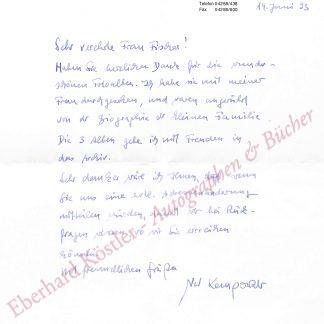 Telefon 04288/438
Fax 04288/600
14. Juni 93
Sehr verehrte Frau Fischer!
Haben Sie herzlichen Dank für die wunder-
schönen Fotoalben. Ich habe sie mit meiner
Frau durchgesehen, und waren angerührt
von der Biographie der kleinen Familie.
Die 3 Alben gebe ich mit Freuden in
das Archiv.
Sehr dankbar wäre ich Ihnen, wenn
Sie uns eine evtl. Adressenänderung
mitteilen würden, damit wir bei Rück-
fragen wissen, wo wir Sie erreichen
können.
Mit freundlichen Grüßen
Kempowski
Eberhard Köstler - Autographen & Bücher